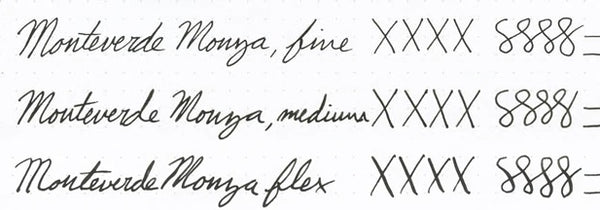 Monteverde Monza, fine XXXX 8888
Monteverde Monza, medium XXXX 8888
Monteverde Monza flex XXXX 8888